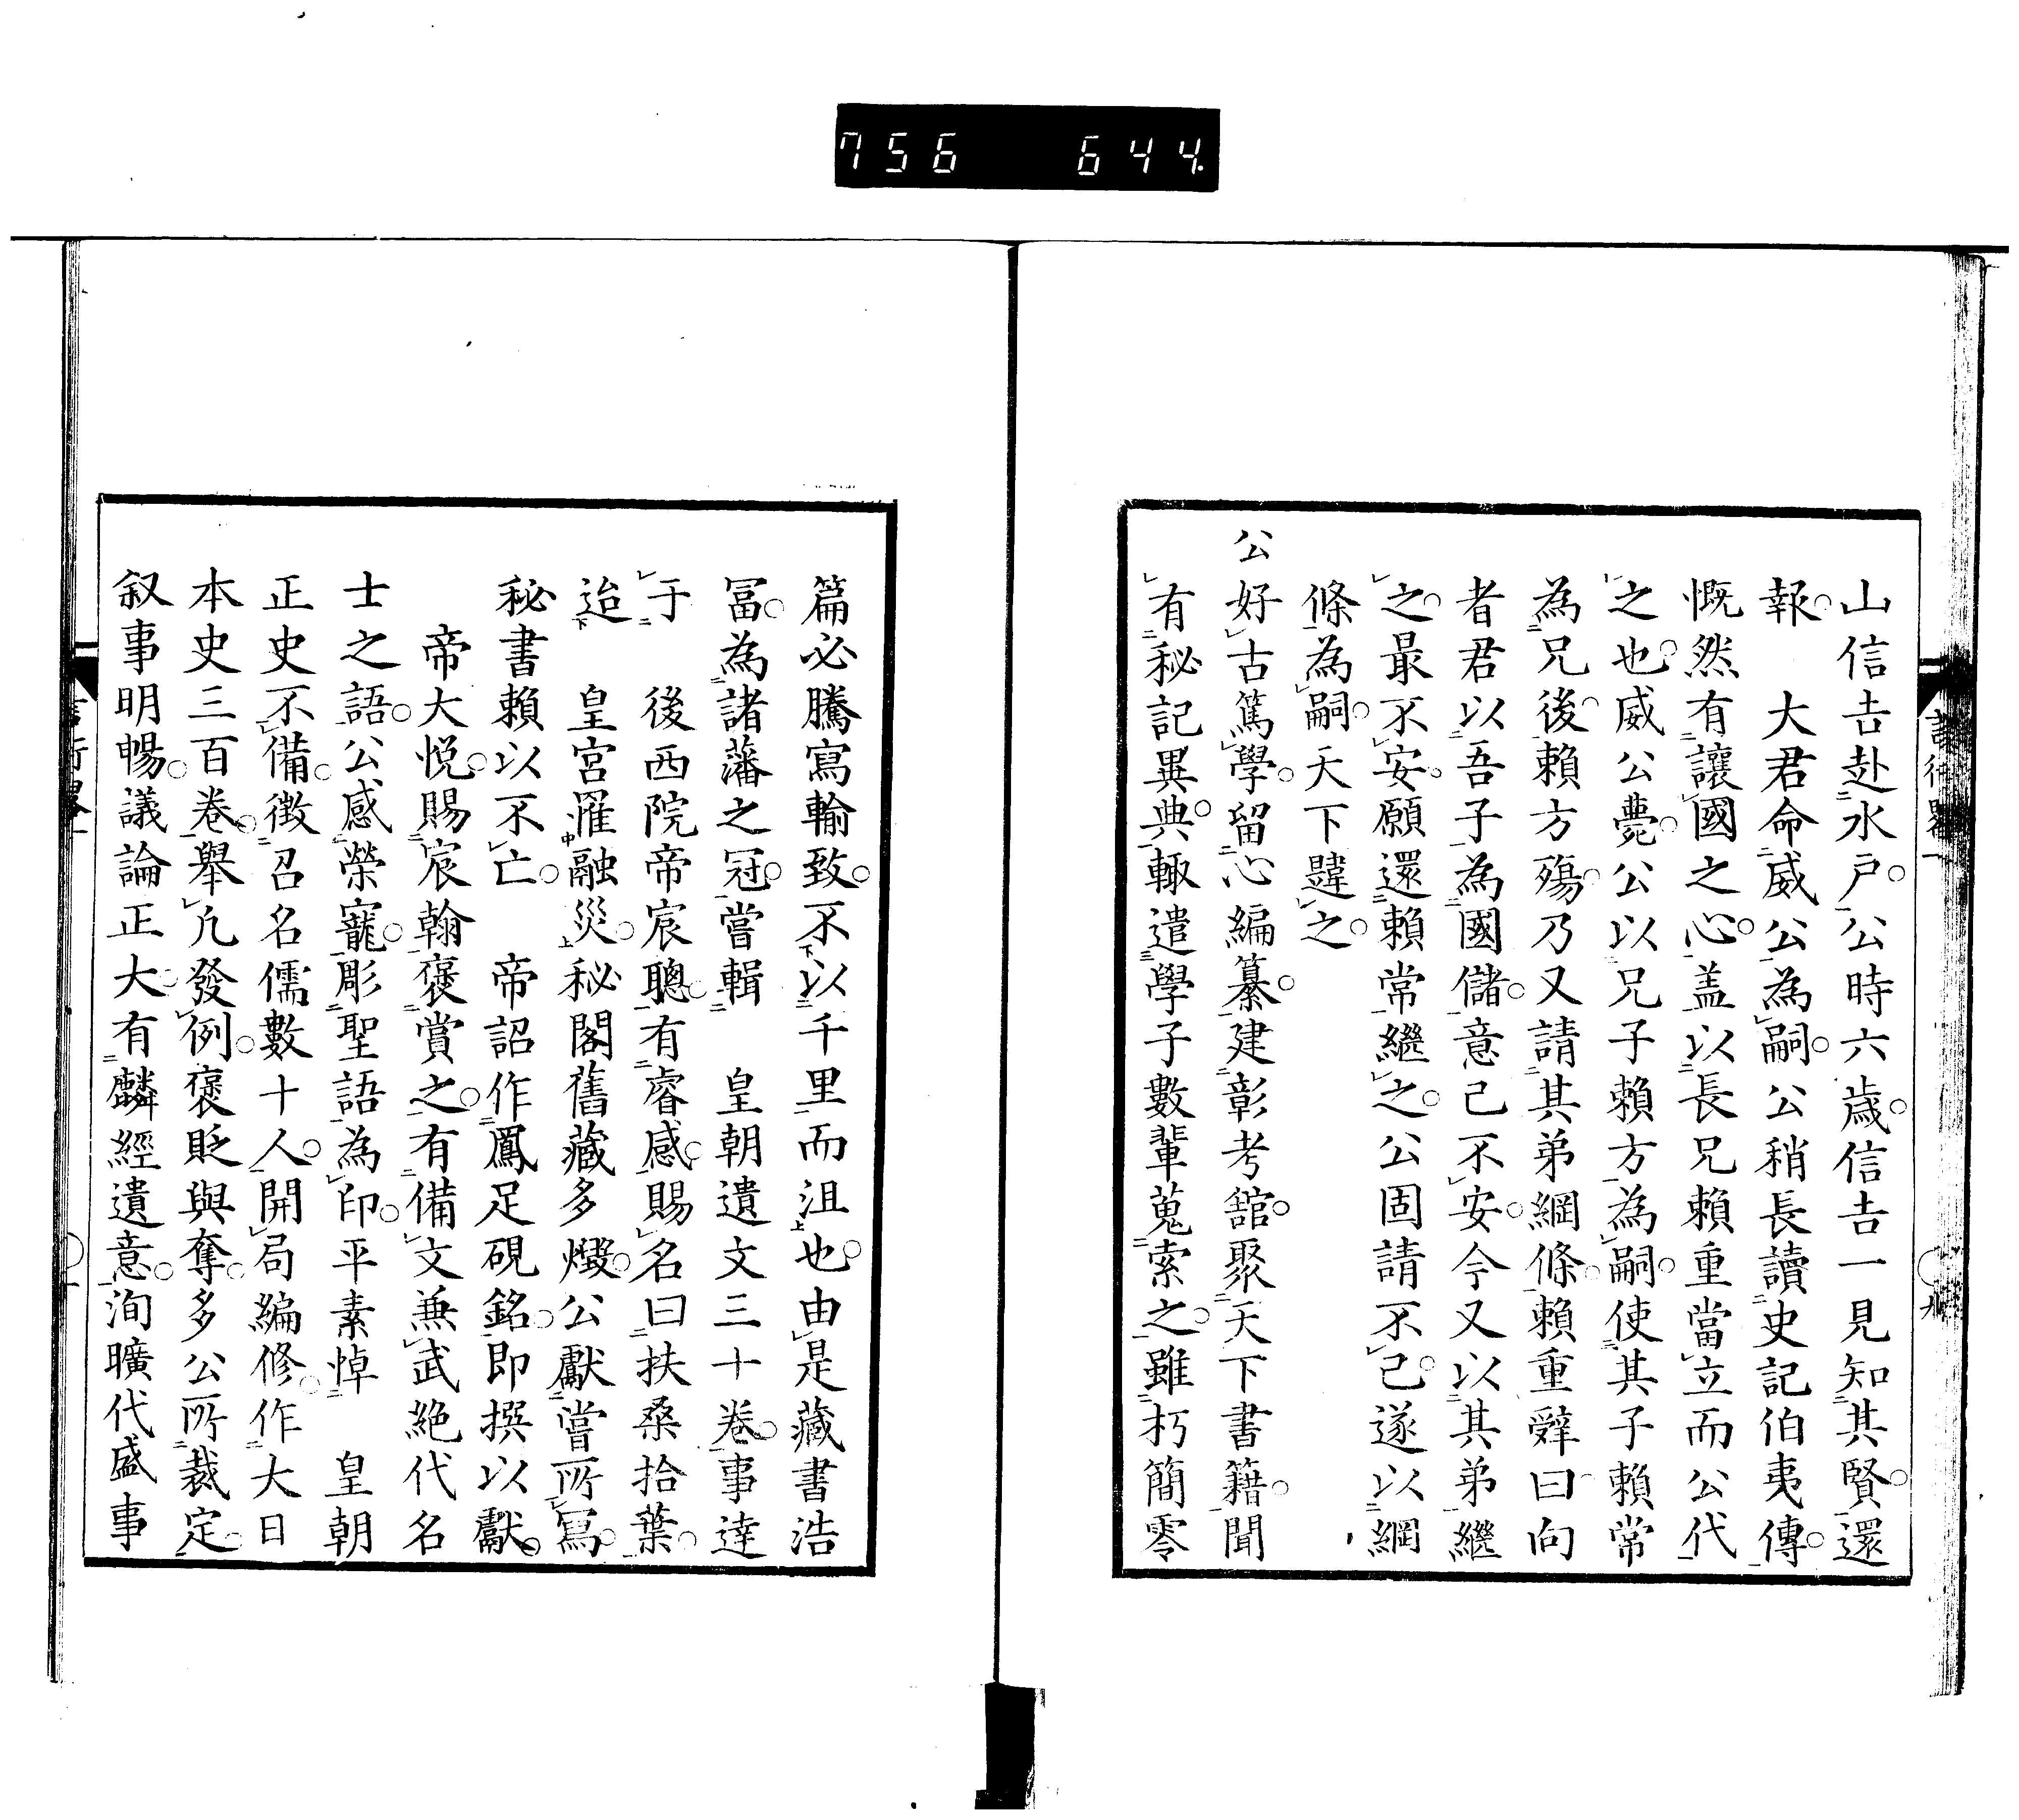 756 644
山信吉赴水戶公時六歲信吉一見知其賢還
報　大君命威公為嗣公稍長讀史記伯夷傳
慨然有讓國之心盖以長兄賴重當立而公代
之也威公薨公以兄子賴方為嗣使其子賴常
為兄後賴方殤乃又請其弟綱條賴重辭曰向
者君以吾子為國儲意已不安今又以其弟繼
之最不安願還賴常繼之公固請不已遂以綱
條為嗣天下韙之
公好古篤學留心編纂建彰考舘聚天下書籍聞
有秘記異典輒遣學子數輩蒐索之雖朽簡零
篇必騰寫輸致不以千里而沮也由是藏書浩
冨為諸藩之冠嘗輯　皇朝遺文三十卷事達
于　後西院帝宸聰有睿感賜名曰扶桑拾葉
迨　皇宮罹融災秘閣舊藏多燬公獻嘗所寫
秘書賴以不亡　帝詔作鳳足硯銘即撰以獻
帝大悦賜宸翰褒賞之有備文兼武絶代名
士之語公感榮寵彫聖語為印平素悼　皇朝
正史不備徴召名儒數十人開局編修作大日
本史三百卷舉凡發例褒貶與奪多公所裁定
叙事明暢議論正大有麟經遺意洵曠代盛事